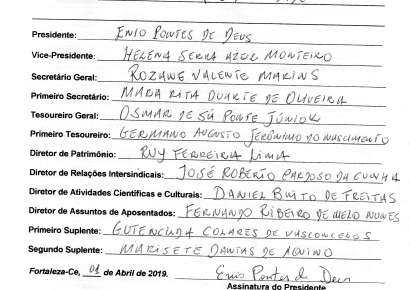 Presidente: ENIO PONTES DE DEUS
Vice-Presidente: HELENA SERRA AZUL MONTEIRO
Secretário Geral: ROZANE VALENTE MARINS
Primeiro Secretário: MARIA RITA DUARTE DE OLIVEIRA
Tesoureiro Geral: OSMAR DE SÁ PONTE JÚNIOR
Primeiro Tesoureiro: GERMANO AUGUSTO JERÔNIMO DO NASCIMENTO
Diretor de Patrimônio: RUY FERREIRA LIMA
Diretor de Relações Intersindicais: JOSÉ ROBERTO CARDOSO DA CUNHA
Diretor de Atividades Científicas e Culturais: DANIEL BRITO DE FREITAS
Diretor de Assuntos de Aposentados: FERNANDO RIBEIRO DE MELO NUNES
Primeiro Suplente: COLARES DE VASCONCELOS
Segundo Suplente: MARISETE DANTAS DE AQUINO
Fortaleza-Ce, 01 de Abril de 2019. Enio Pontes de Deus
Assinatura do Presidente